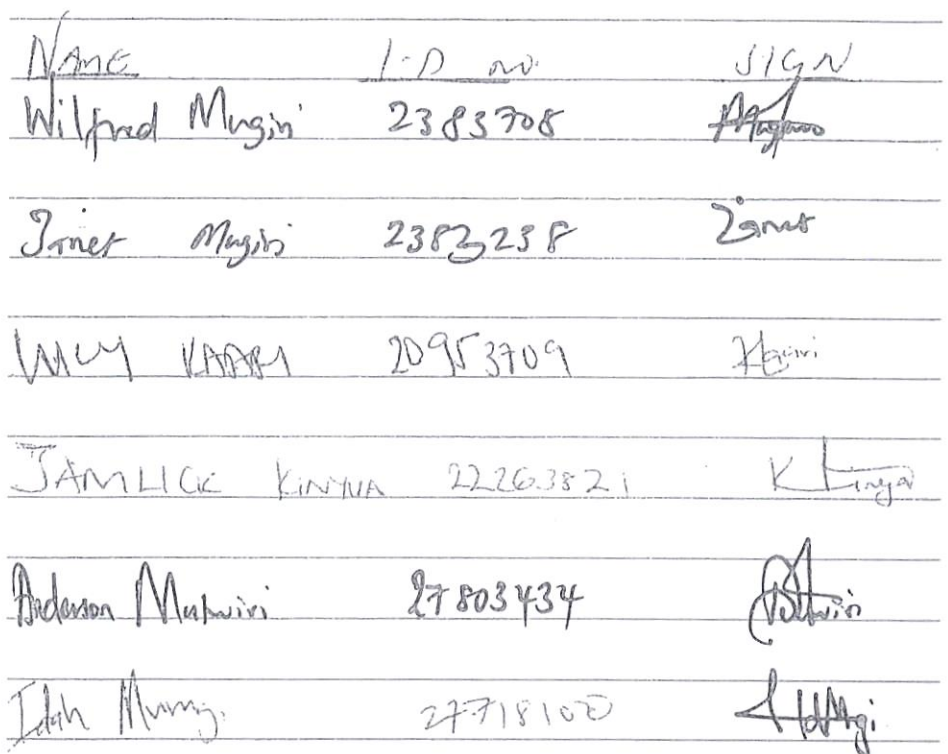 NAME I.D no. SIGN
Wilfred Mugiri 2383708
Janet Mugiri 2383238 Janet
KAARI 20953709 Kaari
JAMLICK KINYUA 22263821
Anderson Mutwiri 27803434
Idah 27718100